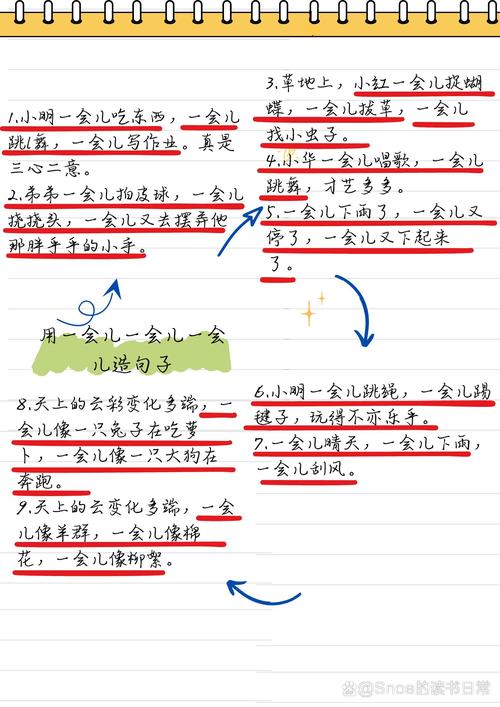 1.小明一会儿吃东西，一会儿
跳l舞，一会儿写作业。真是
三心二意。
2.弟弟一会儿拍皮球，一会儿
挠挠头，一会儿又去摆弄他
那胖乎乎的小手。
3.草地上，小红一会儿捉蝴
蝶，一会儿拔草，一会儿
找小虫子。
4.小华一会儿唱歌，一会儿
跳舞，才艺多多。
5.一会儿下雨了，一会儿又
停了，一会儿又下起来
了。
用一会儿一会儿一会
儿造句子
6.小明一会儿跳绳，一会儿踢
毽子，玩得不亦乐乎。
7.一会儿晴天，一会儿下雨，
一会儿刮风。
8.天上的云彩变化多端，一
会儿像一只兔子在吃萝
卜，一会儿像一只大狗在
奔跑。
9.天上的云变化多端，一会
儿像羊群，一会儿像棉
花，一会儿像柳絮。
知乎@Snoa的读书日常